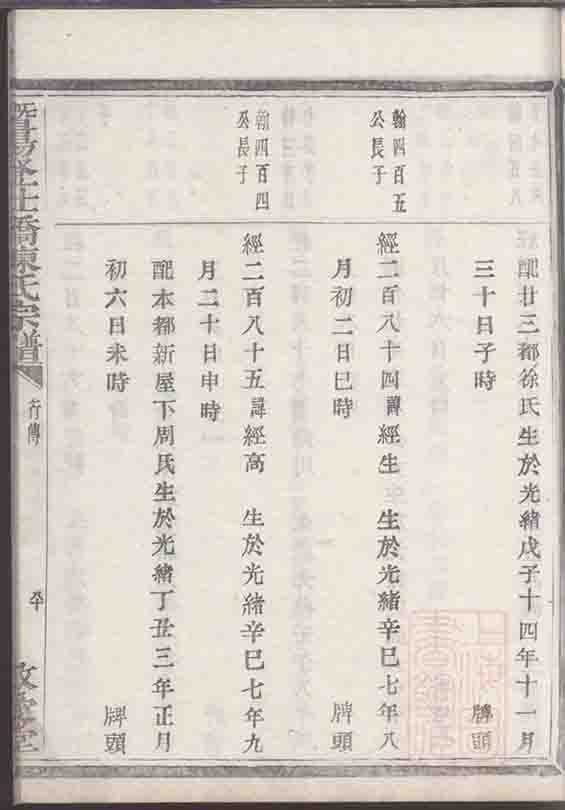 配廿三都徐氏生於光緒戊子十四年十一月
三十日子時 牌頭
翰四百五
公長子
經二百八十四諱經生 生於光緒辛巳七年八
月初二日巳時 牌頭
翰四百四
公長子
經二百八十五諱經高 生於光緒辛巳七年九
月二十日申時
配本都新屋下周氏生於光緒丁丑三年正月
初六日未時 牌頭
橋陳氏宗譜
行傳